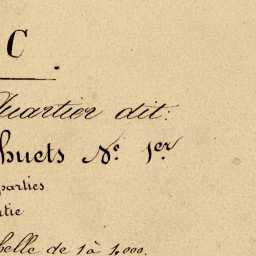 C
Quartier dit:
huets N.º 1.er
parties
tie
helle de 1 à 1,000.